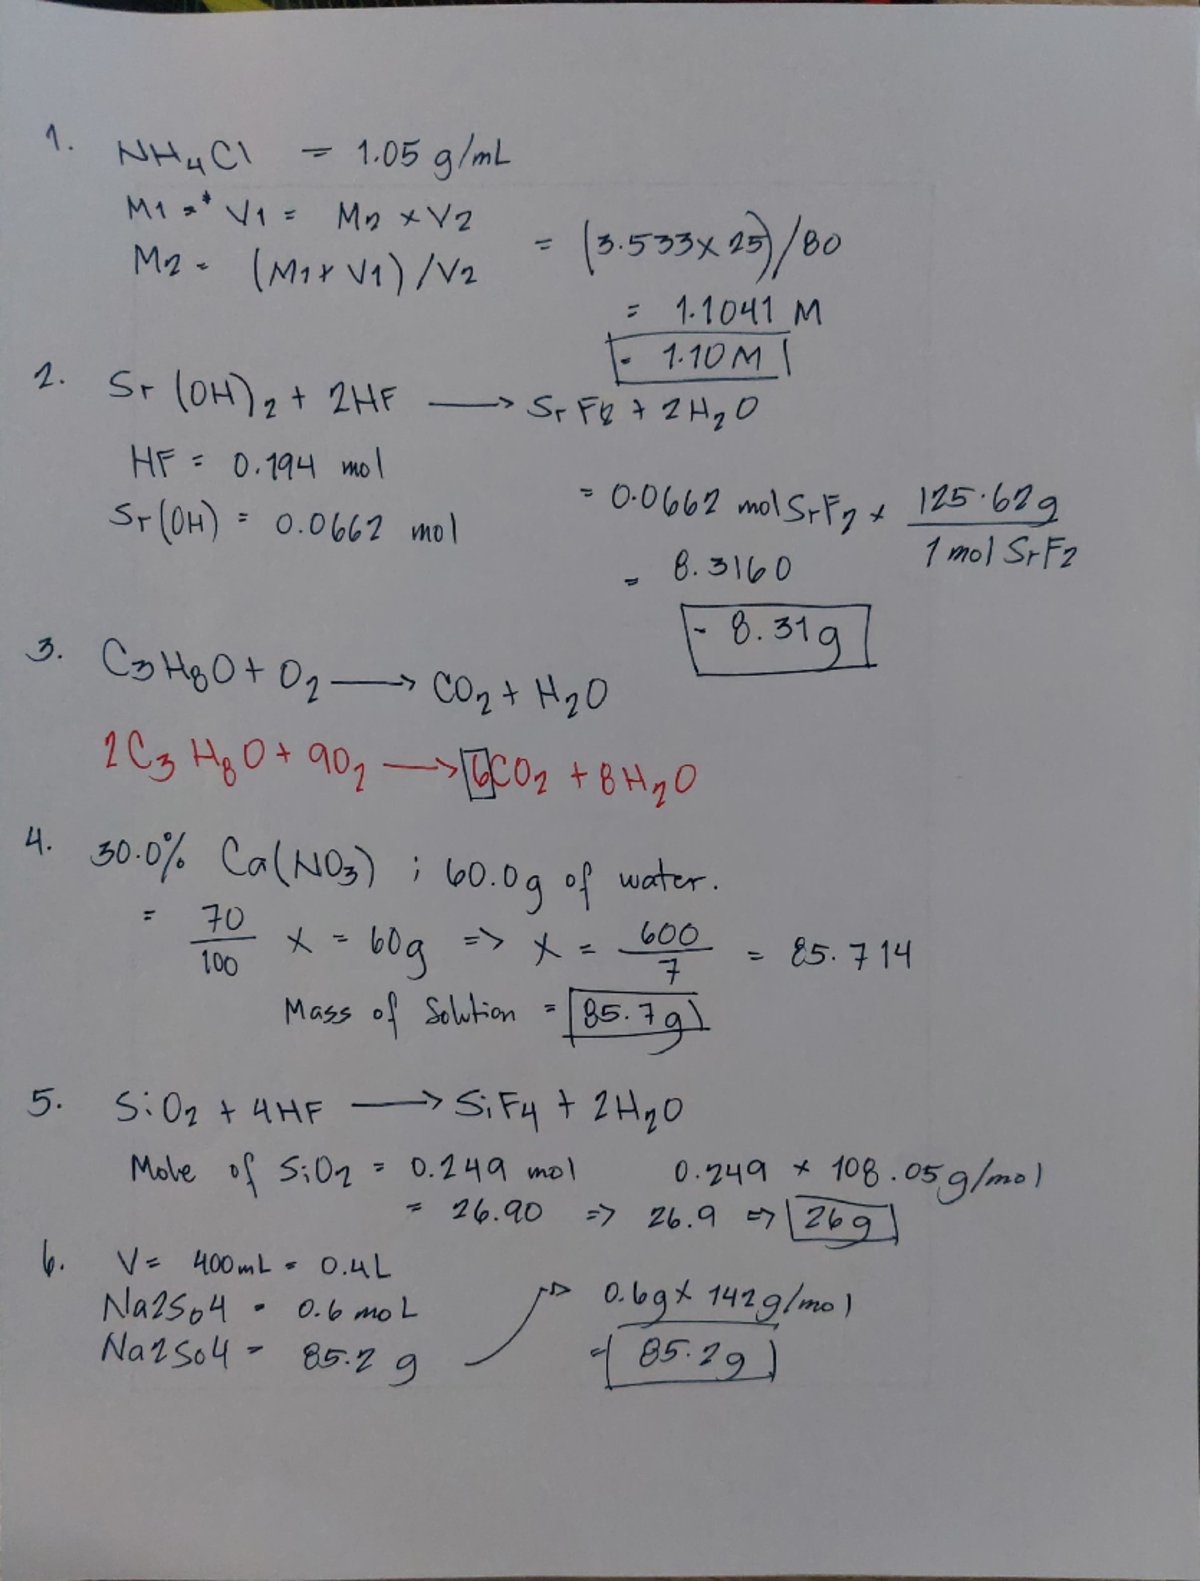 1. NH4Cl = 1.05 g/mL
M1 =* V1 = M2 x V2
M2 = (M1x V1) /V2
= (3.533x 25)/80
= 1.1041 M
= 1.10M
2. Sr (OH)2 + 2HF → SrF2 + 2H2O
HF = 0.194 mol
Sr(OH) = 0.0662 mol
= 0.0662 mol SrF2 x 125.62g / 1 mol SrF2
= 8.3160
- 8.31g
3. C3H8O + O2 → CO2 + H2O
2C3 H8O + 9O2 → 6CO2 + 8H2O
4. 30.0% Ca(NO3) ; 60.0g of water.
= 70/100 x = 60g => x = 600/7 = 85.714
Mass of Solution = 85.7g
5. SiO2 + 4HF → SiF4 + 2H2O
Mole of SiO2 = 0.249 mol
0.249 x 108.05g/mol
= 26.90 => 26.9 => 26g
6. V= 400mL = 0.4L
Na2So4 = 0.6 moL
Na2So4 = 85.2 g
0.6g x 142g/mol
= 85.2g